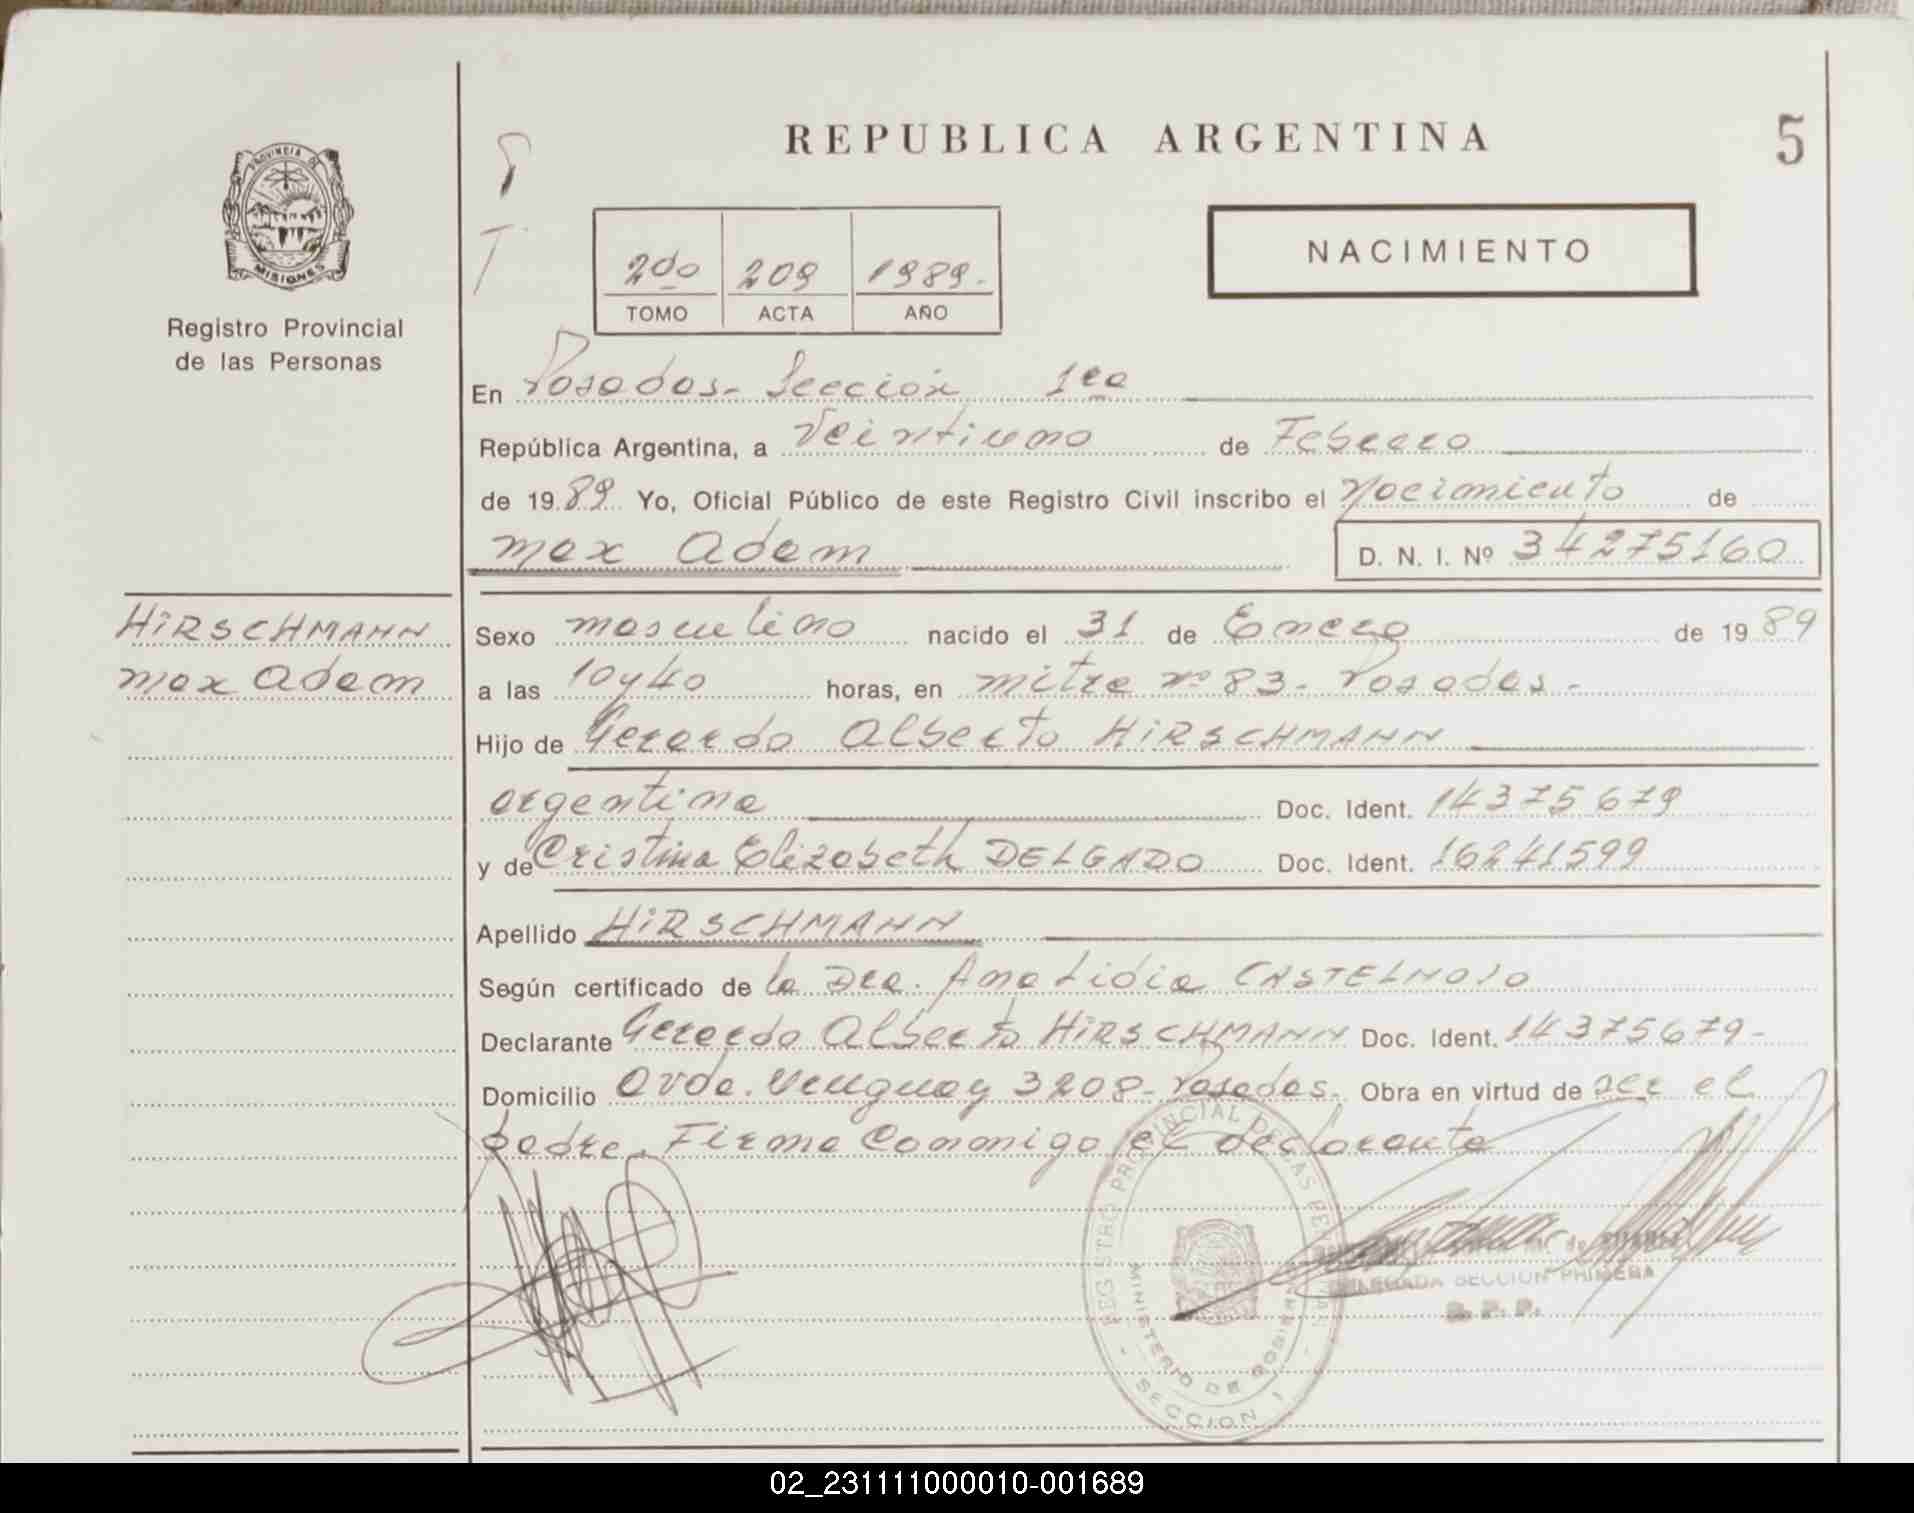 REPUBLICA ARGENTINA
5
PROVINCIA DE
MISIONES
Registro Provincial
de las Personas
2do 209 1989.-
TOMO ACTA AÑO
NACIMIENTO
En Posadas- Sección 1ra
República Argentina, a Veintiuno de Febrero
de 1989 Yo, Oficial Público de este Registro Civil inscribo el Nacimiento de
Max Adam D. N. I. Nº 34275160
HIRSCHMANN
Max Adam
Sexo masculino nacido el 31 de Enero de 1989
a las 10 y 40 horas, en Mitre nº 83- Posadas.-
Hijo de Gerardo Alberto HIRSCHMANN
argentina Doc. Ident. 14375679
y de Cristina Elizabeth DELGADO Doc. Ident. 16241599
Apellido HIRSCHMANN
Según certificado de la Dra. Ana Lidia
Declarante Gerardo Alberto HIRSCHMANN Doc. Ident. 14375679-
Domicilio Avda. Uruguay 3208- Posadas.- Obra en virtud de ser el
padre. Firma Conmigo el declarante
REGISTRO PROVINCIAL DE LAS PERSONAS
MINISTERIO DE GOBIERNO
- SECCION 1 -
DELEGADA SECCION PRIMERA
R. P. P.
02_231111000010-001689